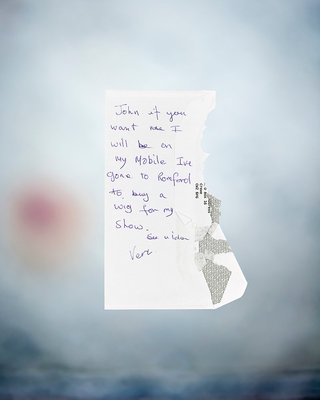 John if you
want me I
will be on
my Mobile Ive
gone to Romford
to buy a
wig for my
Show.
See u later